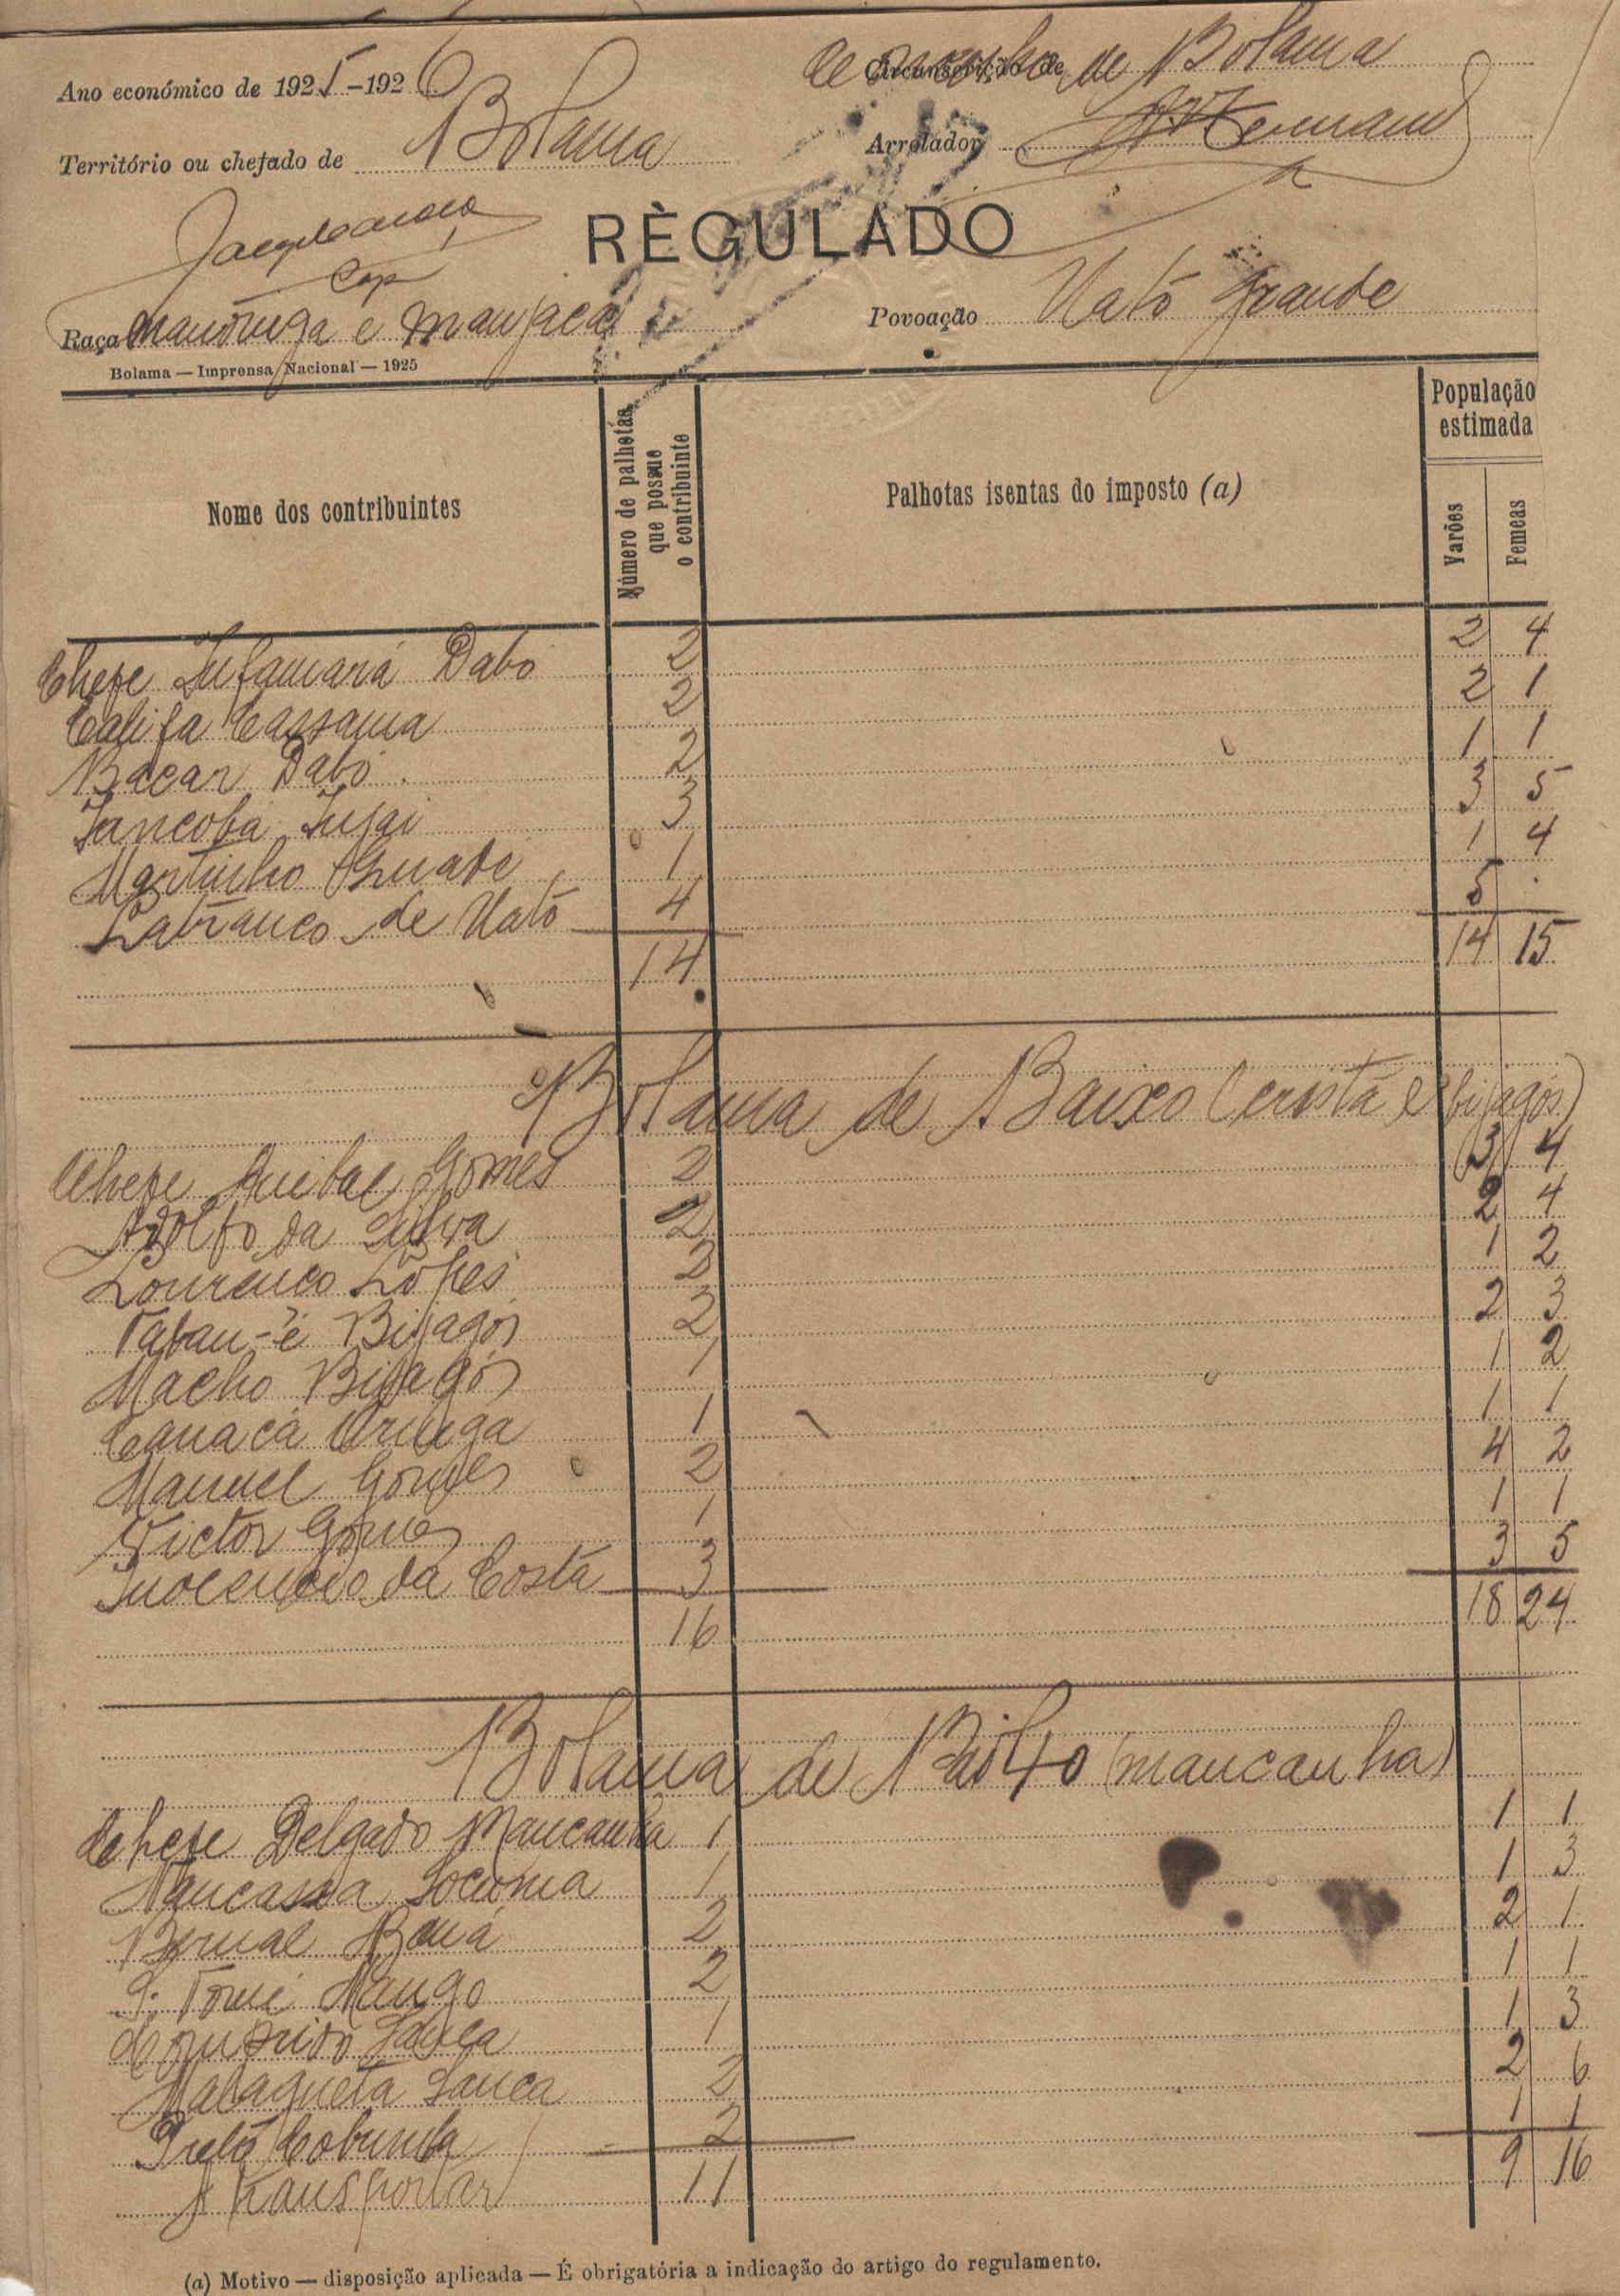 Ano económico de 1925-1926
Concelho de Bolama
Circunscrição de
Território ou chefado de Bolama
Arrolador
RÈGULADO
Raça mandinga e manjaca
Povoação Nató Grande
Bolama — Imprensa Nacional — 1925
Nome dos contribuintes
Número de palhotas que possue o contribuinte
Palhotas isentas do imposto (a)
População estimada
Varões
Femeas
Chefe Infamará Dabó 2 2 4
Califa Cassama 2 2 1
Bacar Dabó 2 1 1
Iancoba Injai 3 3 5
Martinho 1 1 4
de Nató 4 5
14 14 15
Bolama de Baixo (cristã e bijagós)
Chefe Anibal Gomes 2 3 4
Adolfo da Silva 2 2 4
Lourenço Lopes 2 1 2
Bijagós 2 2 3
Macho Bijagós 1 1 2
1 1 1
Manuel Gomes 2 4 2
Victor Gomes 1 1 1
Inocencio da Costa 3 3 5
16 18 24
Bolama de (mancanha)
Chefe Delgado Mancanha 1 1 1
1 1 3
2 2 1
S. Tomé Nango 2 1 1
1 1 3
Malagueta Sanca 2 2 6
Preto 2 1 1
A Transportar 11 9 16
(a) Motivo — disposição aplicada — É obrigatória a indicação do artigo do regulamento.